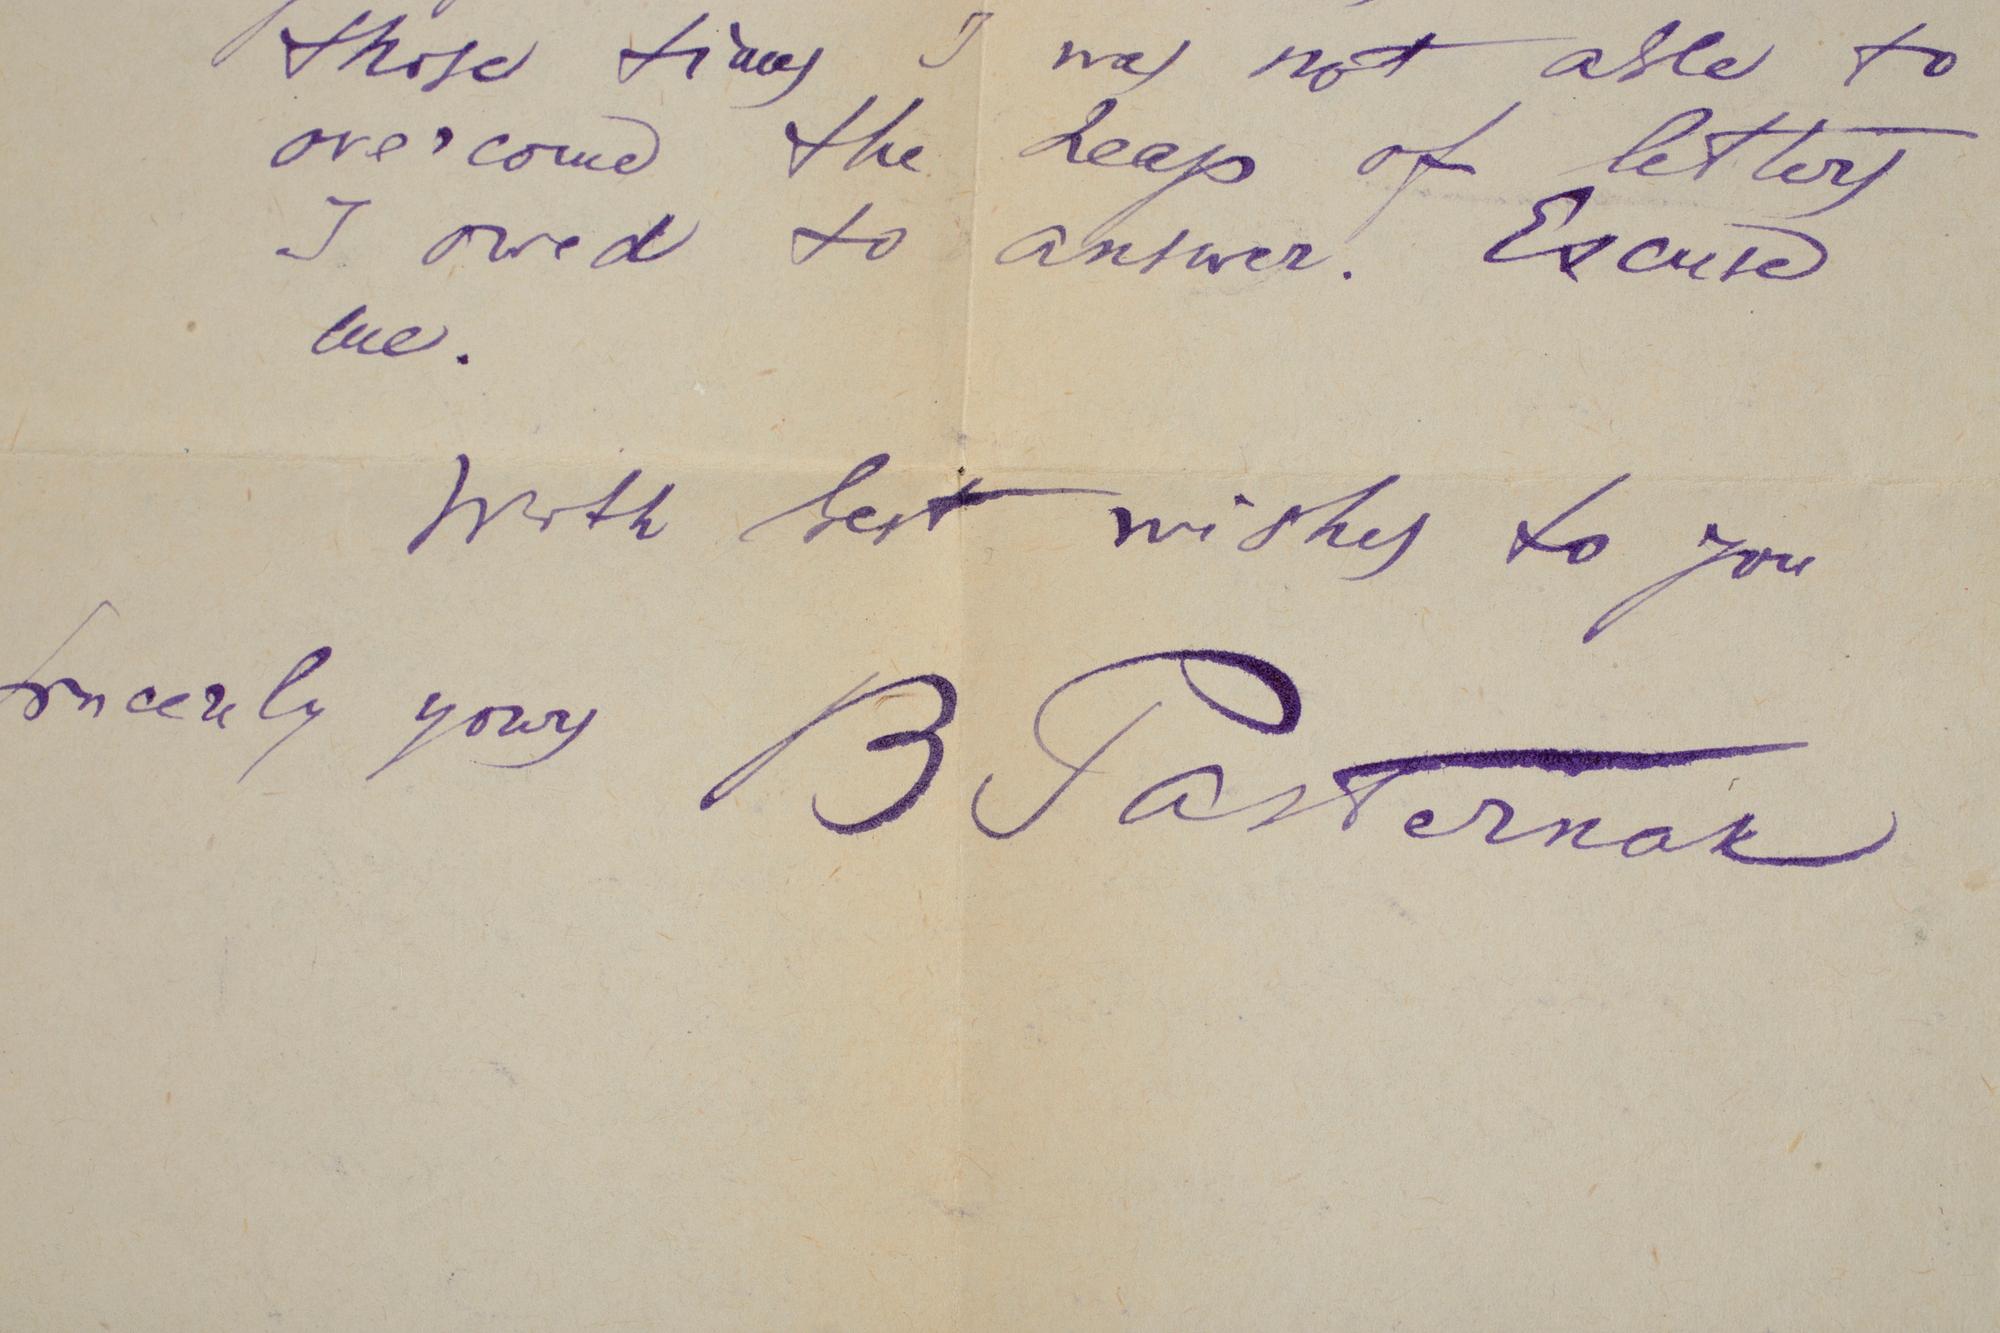 those times I was not able to
overcome the heap of letters
I owed to answer. Excuse
me.
With best wishes to you
Sincerely yours B Pasternak